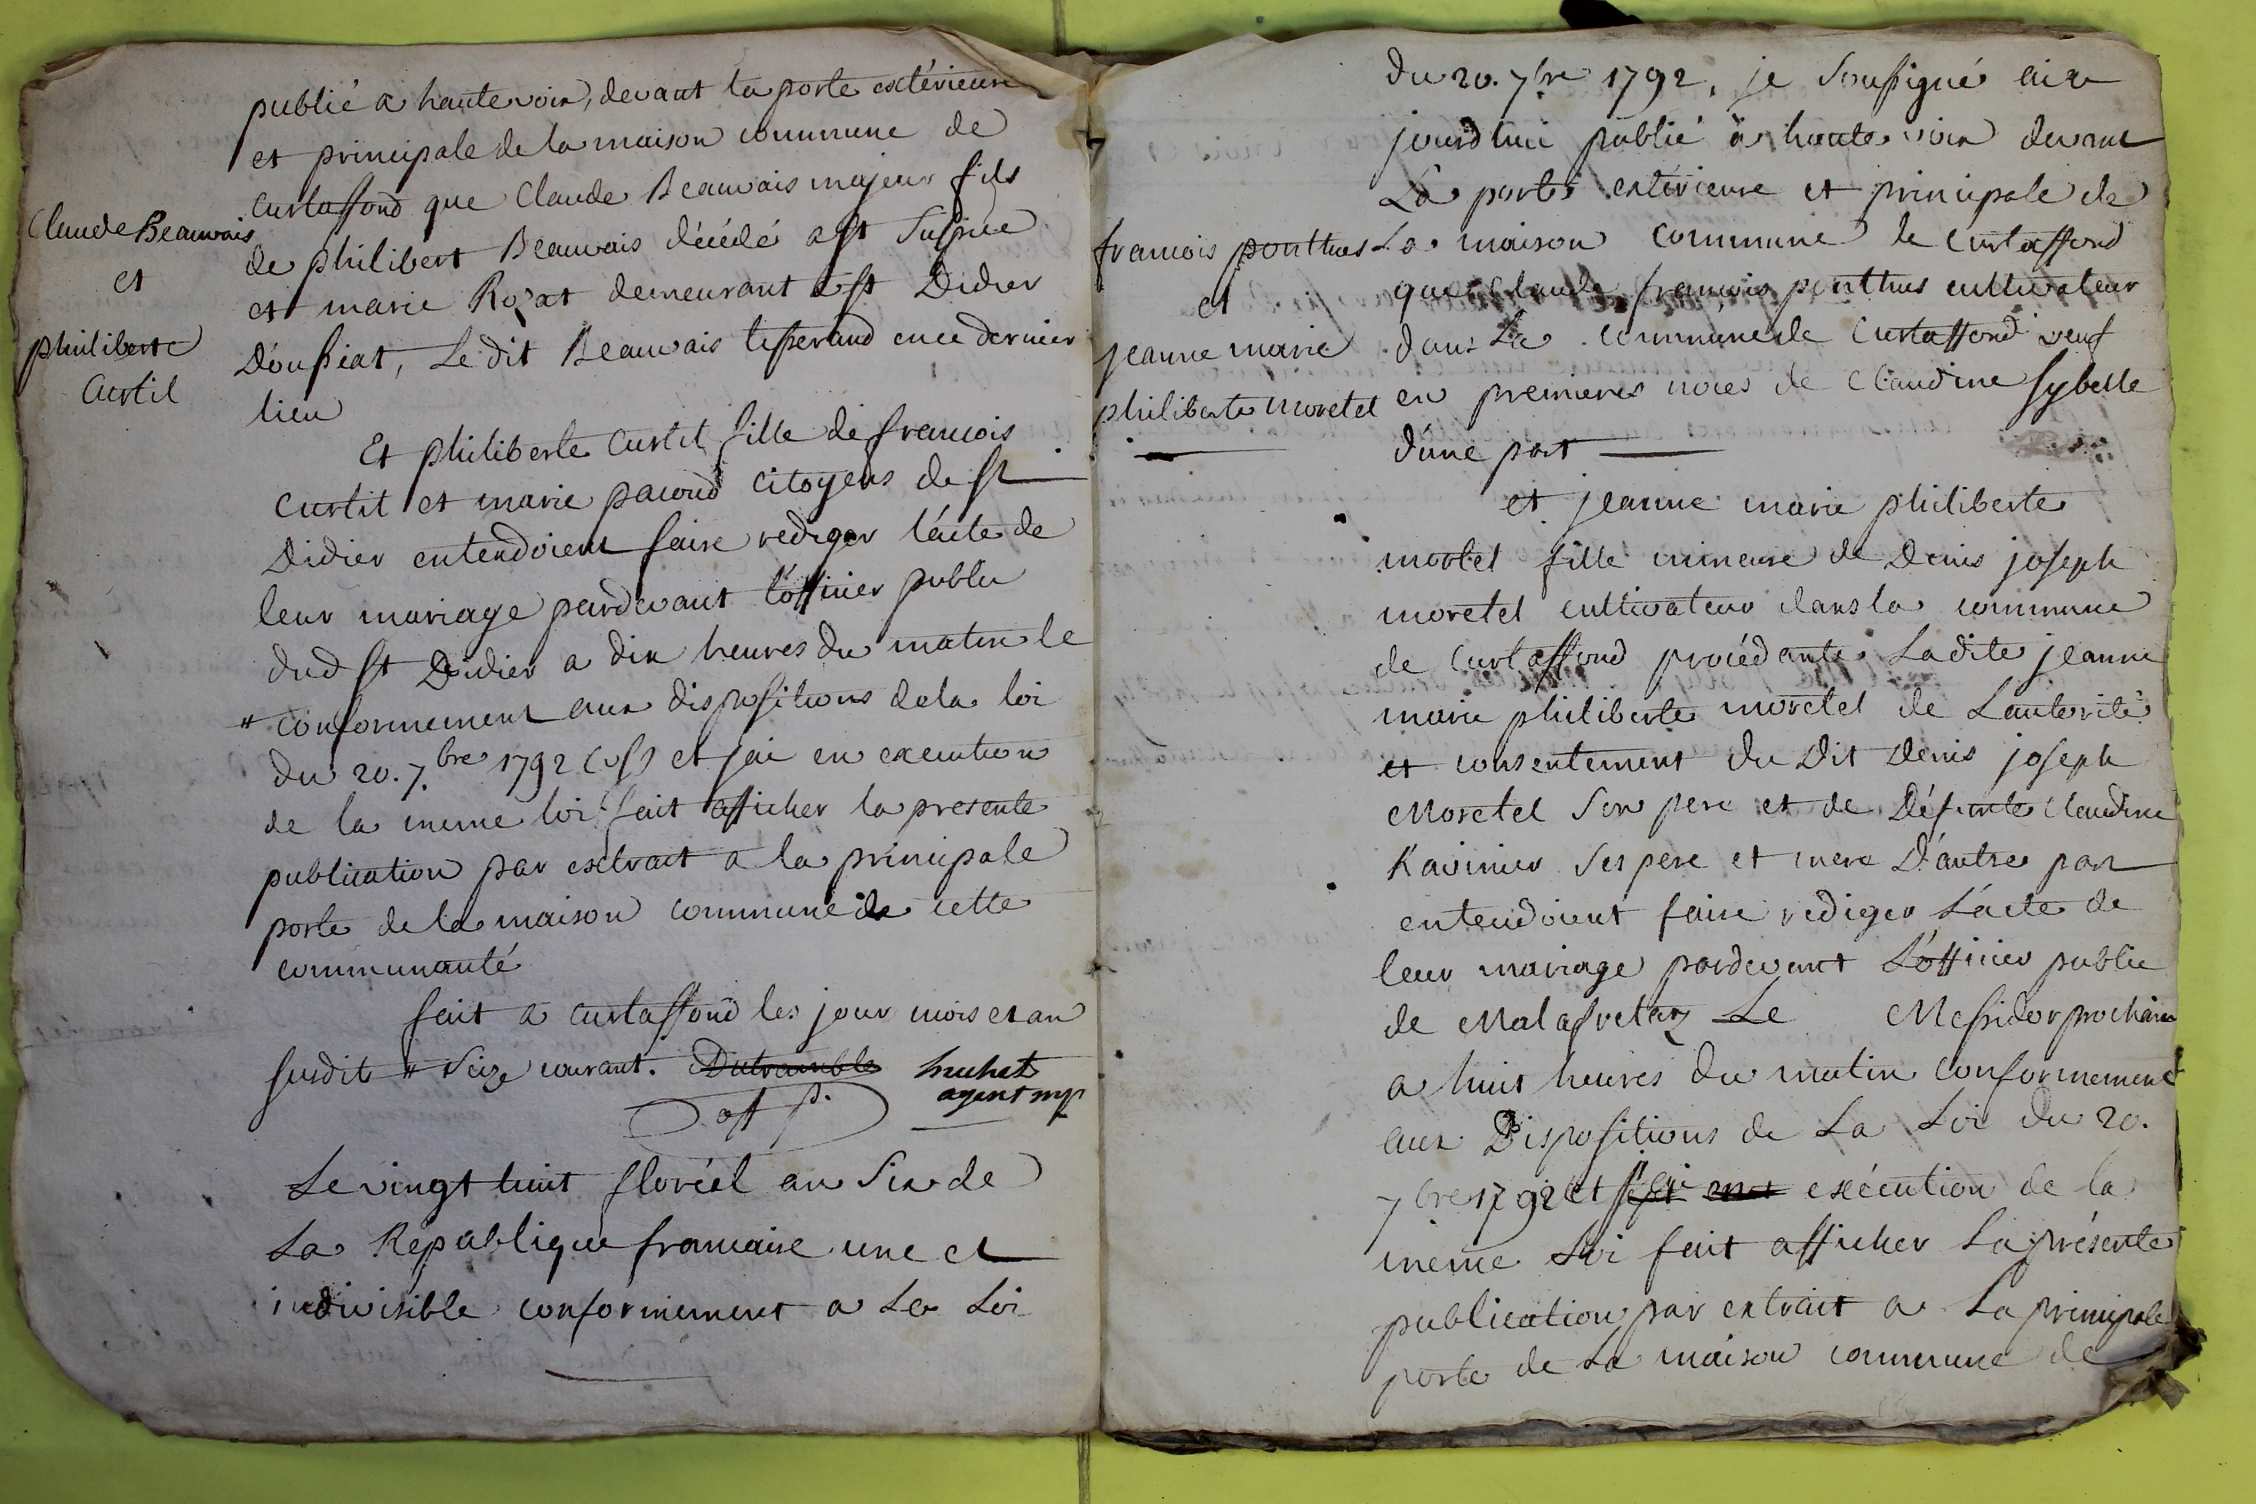 publié a haute voix, devant la porte extérieure
et principale de la maison commune de
Curtaffond que Claude Beauvais majeur fils
Claude Beauvais
et
philiberte
Curtil
de philibert Beauvais décédé a St Sulpice
et marie Rozat demeurant a St Didier
D'oussiat, Le dit Beauvais tisserand en ce dernier
lieu
Et philiberte Curtil fille de francois
Curtil et marie pacoud citoyens de St
Didier entendoient faire rediger l'acte de
leur mariage pardevant l'officier public
dud St Didier a dix heures du matin le
# conformement aux dispositions de la loi
du 20. 7.bre 1792 (vs) et jai en execution
de la meme loi fait afficher la presente
publication par extrait a la principale
porte de la maison commune de cette
communauté
fait a Curtaffond les jour mois et an
susdits # Seize courant. Dutremble
off p.
huchet
agent mp
Le vingt huit floréal an Six de
La Republique francaise une et
indivisible conformement a La Loi
du 20. 7bre 1792, je Soussigné ai au
jourdhui publié à haute voix devant
La porte extérieure et principale de
francois ponthus
et
jeanne marie
philiberte Moretel
La maison commune de Curtaffond
que Claude francois ponthus cultivateur
dans La commune de Curtaffond veuf
en premieres noces de Claudine Sybelle
d'une part
et jeanne marie philiberte
mortel fille mineure de Denis joseph
moretel cultivateur dans la commune
de Curtaffond procédante Ladite jeanne
marie philiberte moretel de Lautorité
et consentement du Dit Denis joseph
Moretel Son pere et de Défunte Claudine
Ravinier Ses pere et mere D'autre part
entendoient faire rediger L'acte de
leur mariage pardevant L'officier public
de Malafretaz Le Messidor prochain
a huit heures du matin conformement
aux Dispositions de La Loi du 20.
7bre 1792 et exécution de la
meme Loi fait afficher La présente
publication par extrait a La principale
porte de La maison commune de